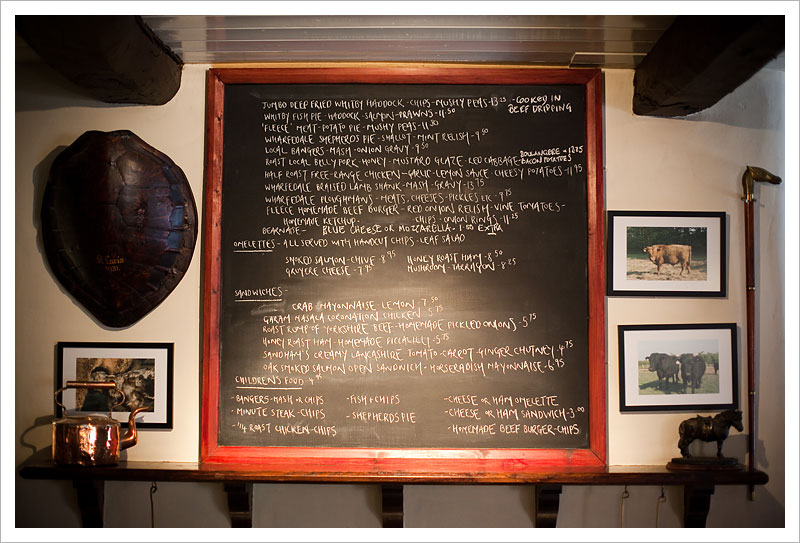 JUMBO DEEP FRIED WHITBY HADDOCK - CHIPS - MUSHY PEAS - 13.25 - COOKED IN BEEF DRIPPING
WHITBY FISH PIE - HADDOCK - SALMON - PRAWNS - 11.50
'FLEECE' MEAT - POTATO PIE - MUSHY PEAS - 11.50
WHARFEDALE SHEPHERDS PIE - SHALLOT - MINT RELISH - 9.50
LOCAL BANGERS - MASH - ONION GRAVY - 9.50
ROAST LOCAL BELLY PORK - HONEY - MUSTARD GLAZE - RED CABBAGE - BOULANGERE - 12.75 BACON POTATOES
HALF ROAST FREE-RANGE CHICKEN - GARLIC - LEMON SAUCE - CHEESY POTATOES - 11.95
WHARFEDALE BRAISED LAMB SHANK - MASH - GRAVY - 13.75
WHARFEDALE PLOUGHMANS - MEATS, CHEESES - PICKLES ETC - 9.75
FLEECE HOMEMADE BEEF BURGER - RED ONION RELISH - VINE TOMATOES -
HOMEMADE KETCHUP - CHIPS - ONION RINGS - 11.25
BEARNAISE - BLUE CHEESE OR MOZZARELLA - 1.00 EXTRA
OMELETTES - ALL SERVED WITH HANDCUT CHIPS - LEAF SALAD
SMOKED SALMON - CHIVE - 8.95 HONEY ROAST HAM - 8.50
GRUYERE CHEESE - 7.95 MUSHROOM - TARRAGON - 8.25
SANDWICHES -
CRAB MAYONNAISE LEMON - 7.50
GARAM MASALA CORONATION CHICKEN - 5.75
ROAST RUMP OF YORKSHIRE BEEF - HOMEMADE PICKLED ONIONS - 5.75
HONEY ROAST HAM - HOMEMADE PICCALILLY - 5.75
SANDHAM'S CREAMY LANCASHIRE TOMATO - CARROT - GINGER CHUTNEY - 4.75
OAK SMOKED SALMON OPEN SANDWICH - HORSERADISH MAYONNAISE - 6.95
CHILDREN'S FOOD 4.95
- BANGERS - MASH OR CHIPS - FISH & CHIPS - CHEESE OR HAM OMELETTE
- MINUTE STEAK - CHIPS - SHEPHERDS PIE - CHEESE OR HAM SANDWICH - 3.00
- 1/4 ROAST CHICKEN - CHIPS - HOMEMADE BEEF BURGER - CHIPS